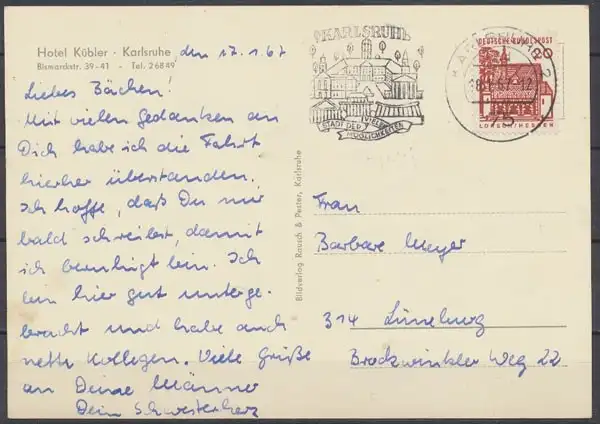 Hotel Kübler · Karlsruhe
Bismarckstr. 39-41 - Tel. 26849
den 17.1.67
Liebes Bächen!
Mit vielen Gedanken an
Dich habe ich die Fahrt
hierher überstanden.
Ich hoffe, daß Du mir
bald schreibst, damit
ich beruhigt bin. Ich
bin hier gut unterge-
bracht und habe auch
nette Kollegen. Viele Grüße
an Deine Männer
Dein Schwesterherz
Bildverlag Rausch & Pester, Karlsruhe
KARLSRUHE
STADT DER VIELSEITIGEN
MÖGLICHKEITEN
KARLSRUHE 2
75
DEUTSCHE BUNDESPOST
20
LORSCH/HESSEN
Frau
Barbara Meyer
314 Lüneburg
Brockwinkler Weg 22